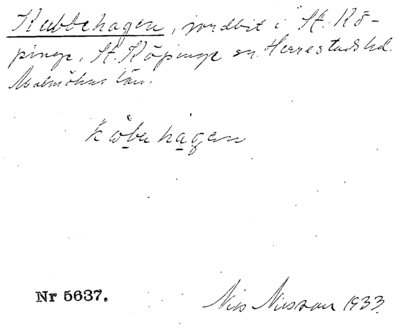 Kubbehagen, jordbit i St. Kö-
pinge, St. Köpinge sn. Herrestads hd.
Malmöhus län.
Nr 5637.
Nils Nilsson 1933.